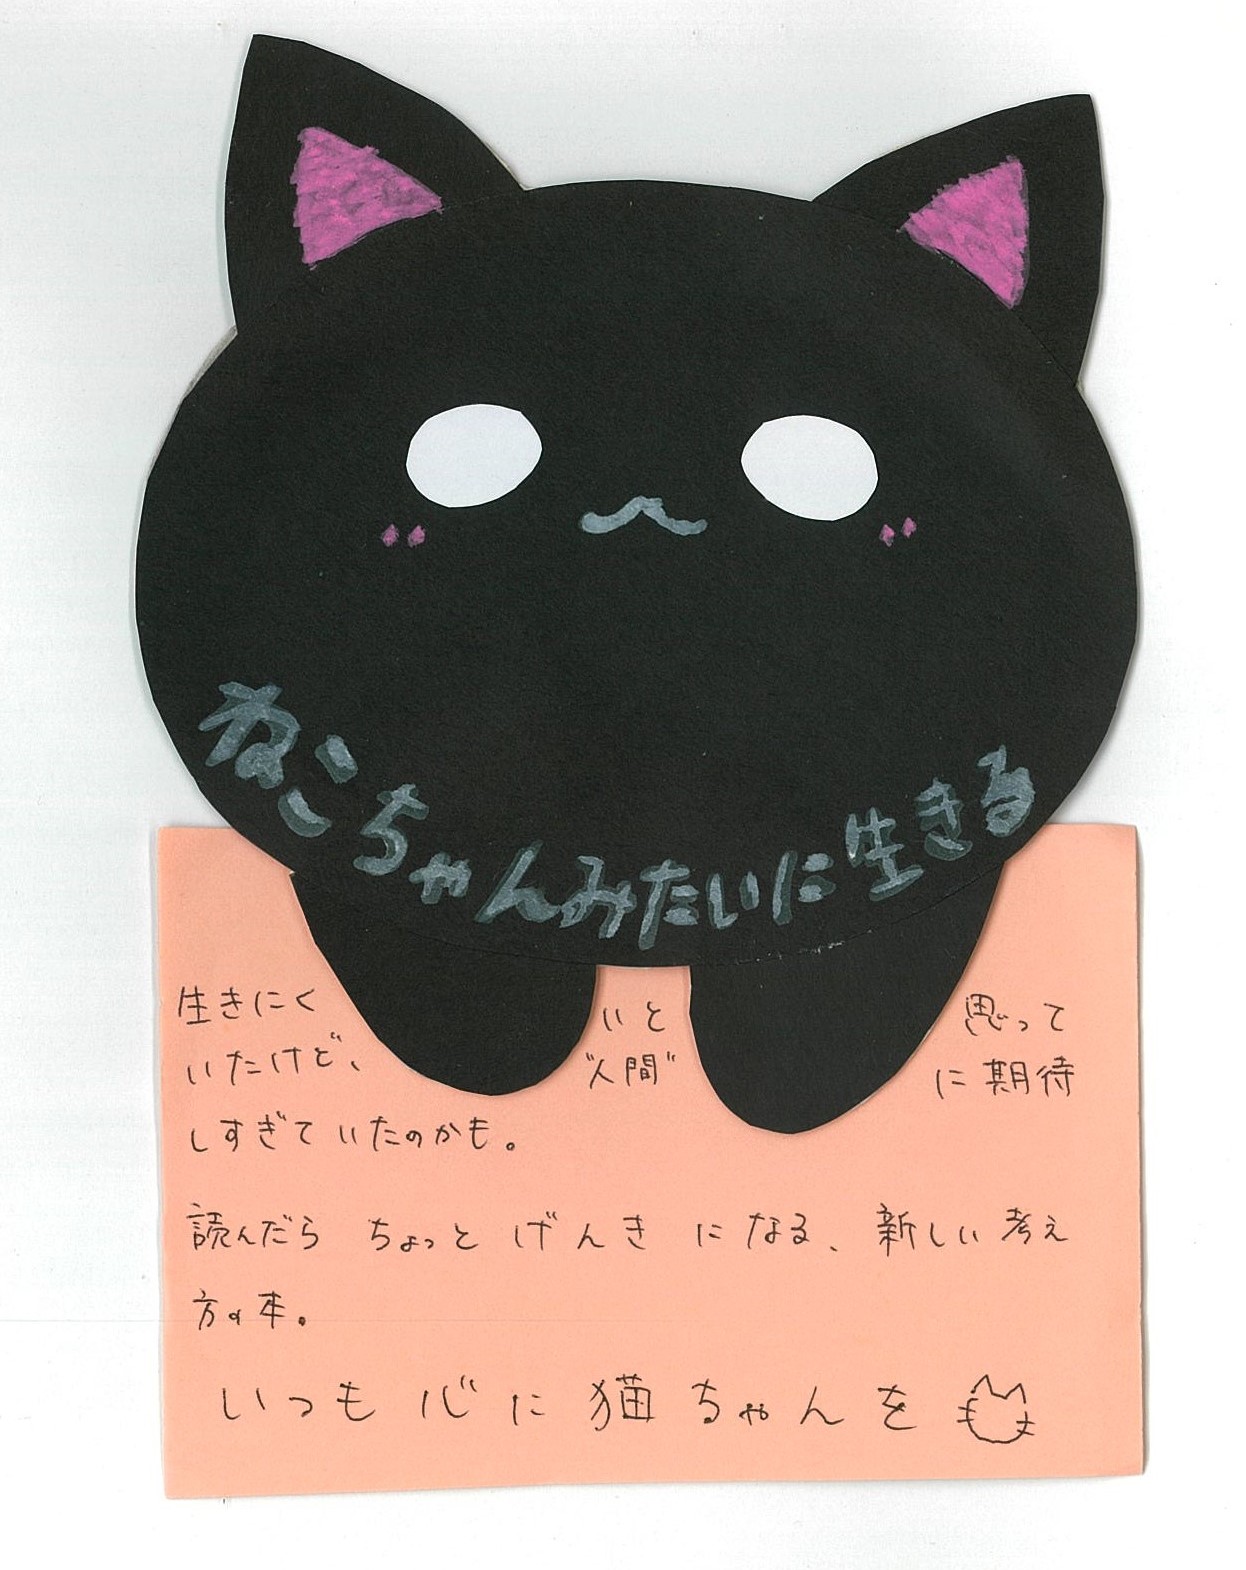 ねこちゃんみたいに生きる
生きにくいと思って
いたけど、"人間"に期待
しすぎていたのかも。
読んだら ちょっと げんき に なる、新しい考え
方の本。
いつも心に猫ちゃんを